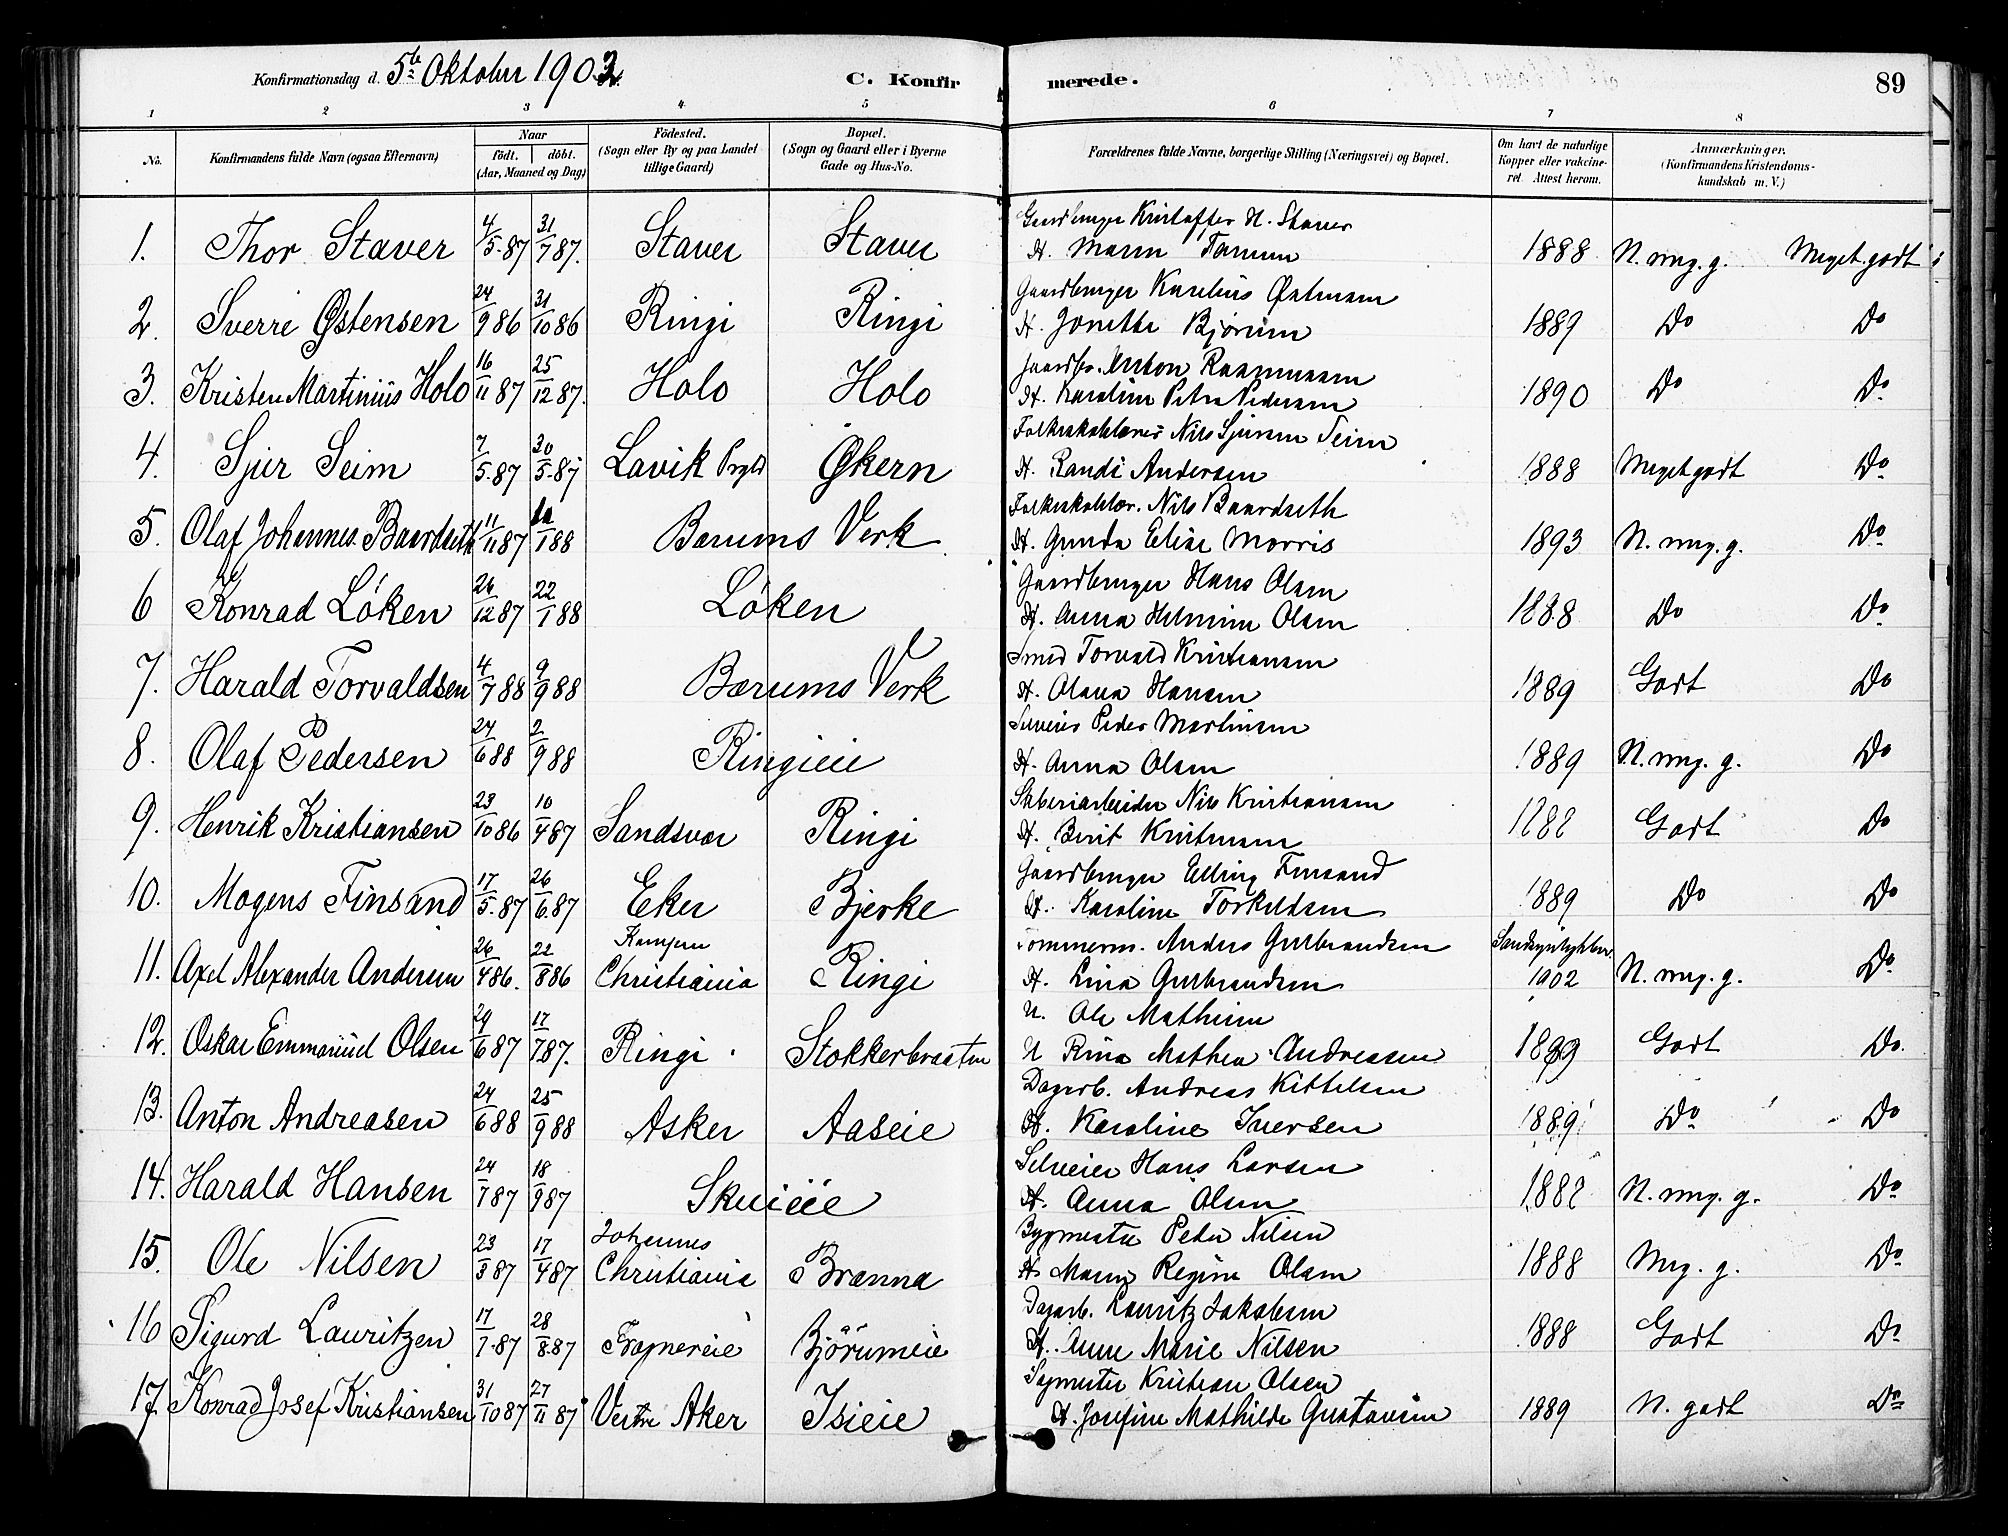 Konfirmationsdag d. 5te Oktober 1902. C. Konfirmerede. 89
1 2 3 4 5 6 7 8
No. Konfirmandens fulde Navn (ogsaa Efternavn) Naar födt. döbt. (Aar, Maaned og Dag) Födested. (Sogn eller By og paa Landet tillige Gaard) Bopæl. (Sogn og Gaard eller i Byerne Gade og Hus-No. Forældrenes fulde Navne, borgerlige Stilling (Næringsvei) og Bopæl. Om havt de naturlige Kopper eller vakcineret. Attest herom. Anmærkninger. (Konfirmandens Kristendomskundskab m. V.)
Gaardbruger Kristoffer H. Staver
1. Thor Staver 4/5.87 31/7 87. Staver Staver H. Maren Tanum 1888 N. mg. g. Meget godt
Gaardbruger Karelius Østensen
2. Sverre Østensen 24/9 86 31/10 86 Ringi Ringi H. Jonette Bjørum 1889 Do Do
Gaardbr. Anton Rasmussen
3. Kristen Martinius Holo 16/11 87 25/12 87. Holo Holo H. Karoline Petra Pedersen 1890 Do Do
Folkeskolelærer Nils Sjursen Seim
4. Sjur Seim 7/5.87 30/5.87 Lavik Prgld Økern H. Randi Andersen 1888 Meget godt Do
Folkeskolelær. Nils Baardseth
5. Olaf Johannes Baardseth 11/11 87 /1 88 Bærums Verk H. Gunda Elise Morris 1893 N. mg. g. Do
Gaardbruger Hans Olsen
6 Konrad Løken 26/12 87 22/1 88 Løken H. Anna Helmine Olsen 1888 Do Do
Smed Torvald Kristiansen
7. Harald Torvaldsen 4/7 88 9/9 88 Bærums Verk H. Olava Hansen 1889 Godt Do
Selveier Peder Martinsen
8. Olaf Pedersen 24/6 88 2/9 88 Ringieie H. Anna Olsen 1889 N. mg. g. Do
Sliberiarbeider Nils Kristiansen
9. Henrik Kristiansen 23/10 86 10/4 87 Sandsvær Ringi H. Berit Kristensen 1888 Godt Do
Gaardbruger Elling Finsand
10. Mogens Finsand 17/5.87 26/6.87 Eker Bjerke H. Karoline Torkildsen 1889 Do Do
Kampen Tømmerm. Anders Gulbrandsen
11. Axel Alexander Andersen 26/4 86. 22/8 86 Christiania Ringi H. Lina Gulbrandsen 1902 N. mg. g. Do
U. Ole Mathisen
12. Oskar Emmanuel Olsen 29/6 87 17/7.87. Ringi Stokkerbraaten U Rina Mathea Andreassen 1889 Godt Do.
Dagarb. Andreas Kittelsen
13. Anton Andreasen 24/6 88 25/9 88 Asker Aaseie H. Karoline Iversen 1889 Do Do
Selveier Hans Larsen
14. Harald Hansen 24/7 87 18/9 87 Skuieie H. Anna Olsen 1888 N. mg. g. Do
Johannes Bygmester Peder Nilsen
15. Ole Nilsen 23/3 87 17/4 87 Christiania Brænna H. Maren Regine Olsen 1888 Mg. g. Do
Dagarb. Lauritz Jakobsen
16 Sigurd Lauritzen 17/7.87 28/8.87 Frognereie Bjørumeie H. Anne Marie Nilsen 1888 Godt Do
Sagmester Kristian Olsen
17. Konrad Josef Kristiansen 31/10 87 27/11 87 Vestre Aker Isieie H. Josefine Mathilde Gustavsen 1889 N. godt Do